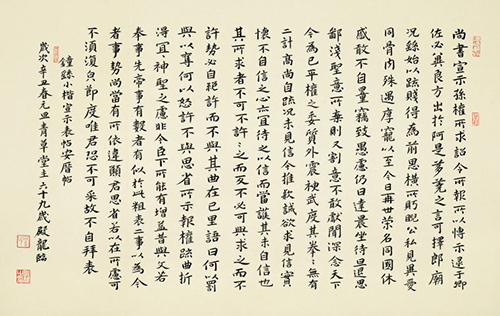 尚書宣示孫權所求詔令所報所以博示逮于卿
佐必冀良方出於阿是芻蕘之言可擇郎廟
況繇始以疏賤得為前恩橫所眄睨公私見異愛
同骨肉殊遇厚寵以至今日再世榮名同國休
感敢不自量竊致愚慮仍日達晨坐待旦退思
鄙淺聖意所棄則又割意不敢獻聞深念天下
今為已平權之委質外震神武度其拳々無有
二計高尚自疏況未見信今推款誠欲求見信實
懷不自信之心亦宜待之以信而當護其未自信也
其所求者不可不許々之而反不必可與求之而不
許勢必自絕許而不與其曲在己里語曰何以罰
與以奪何以怒許不與思省所示報權疏曲折
得宜神聖之慮非今臣下所能有增益昔與文若
奉事先帝事有數者有似於此粗表二事以為今
者事勢尚當有所依違願君思省若以在所慮可
不須復皃節度唯君恐不可采故不自拜表
鐘繇小楷宣示表帖安曆帖
歲次辛丑春元旦青草堂主六十九歲殿龍臨